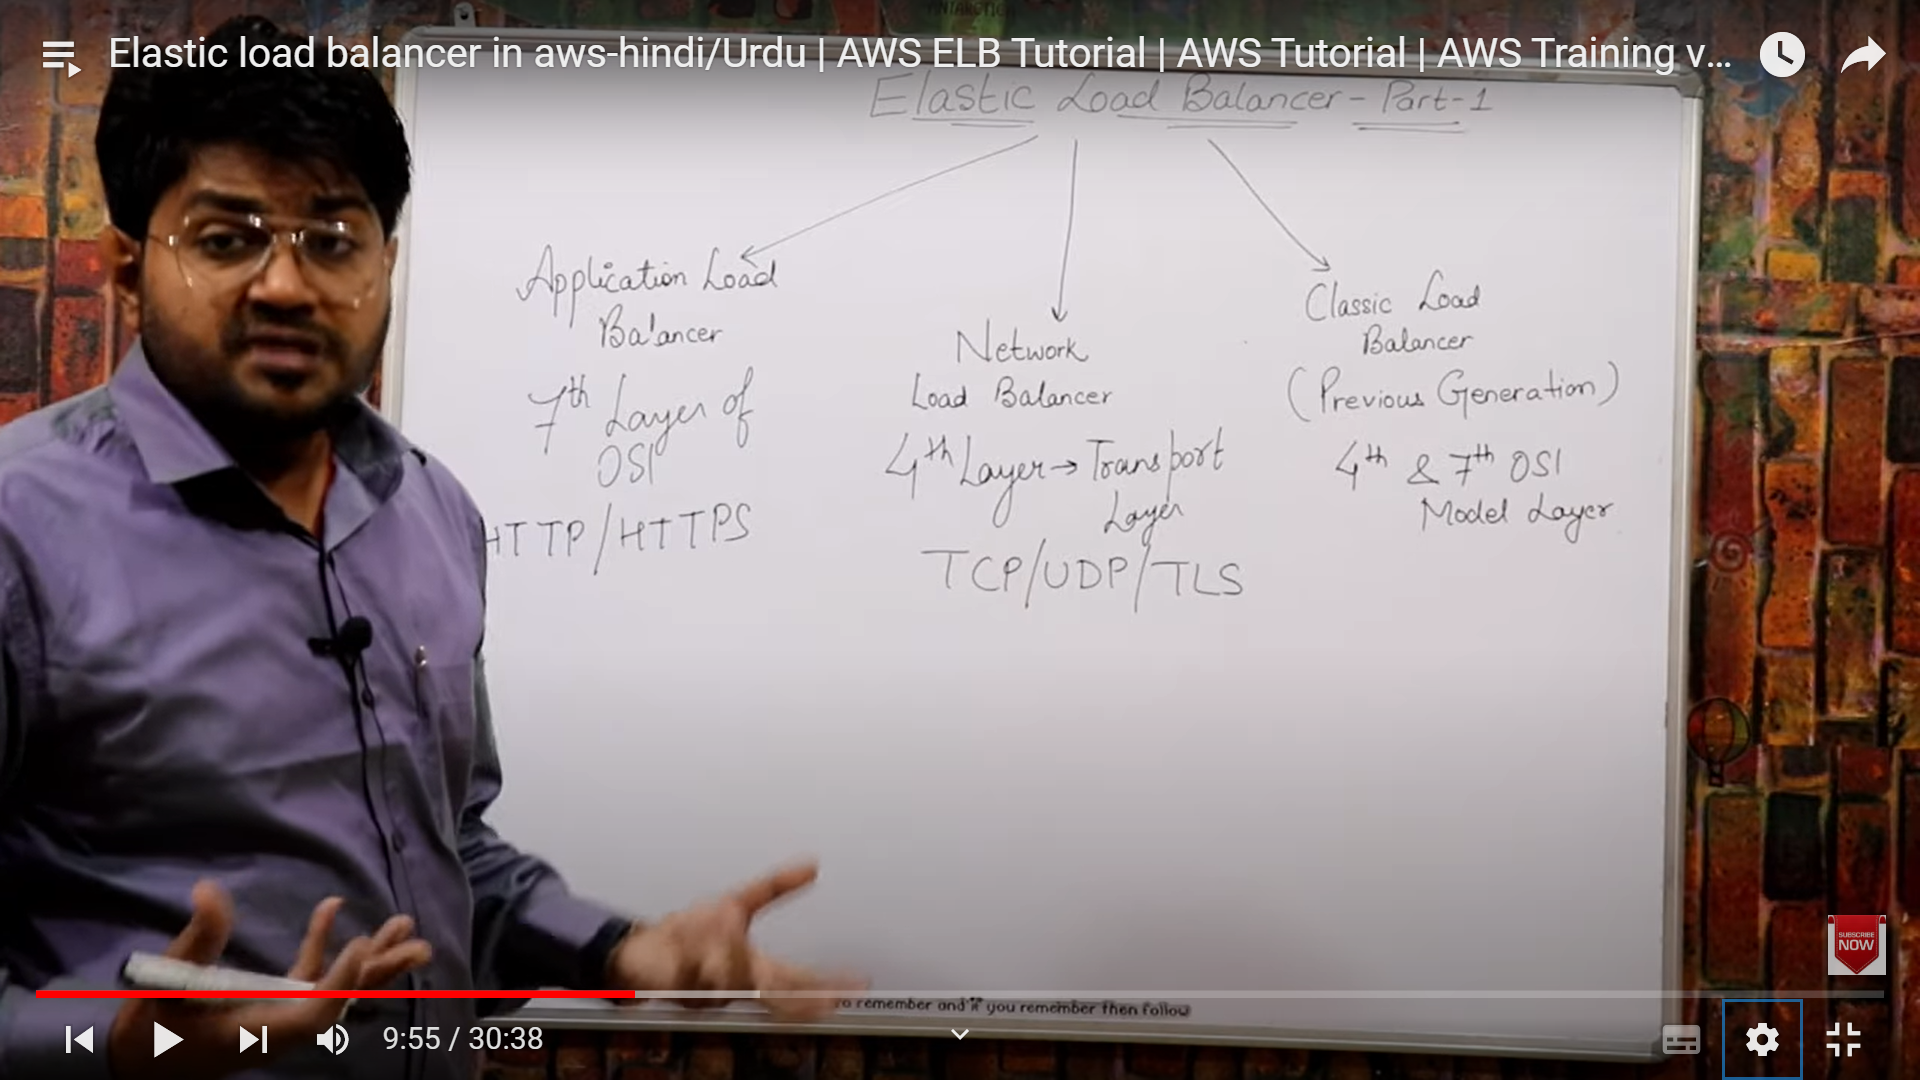 ANTARCTICA
Elastic load balancer in aws-hindi/Urdu | AWS ELB Tutorial | AWS Tutorial | AWS Training v...
Elastic Load Balancer - Part-1
Application Load
Balancer
7th Layer of
OSI
HTTP/HTTPS
Network
Load Balancer
4th Layer → Transport
Layer
TCP/UDP/TLS
Classic Load
Balancer
(Previous Generation)
4th & 7th OSI
Model Layer
SUBSCRIBE
NOW
to remember and if you remember then follow
9:55 / 30:38